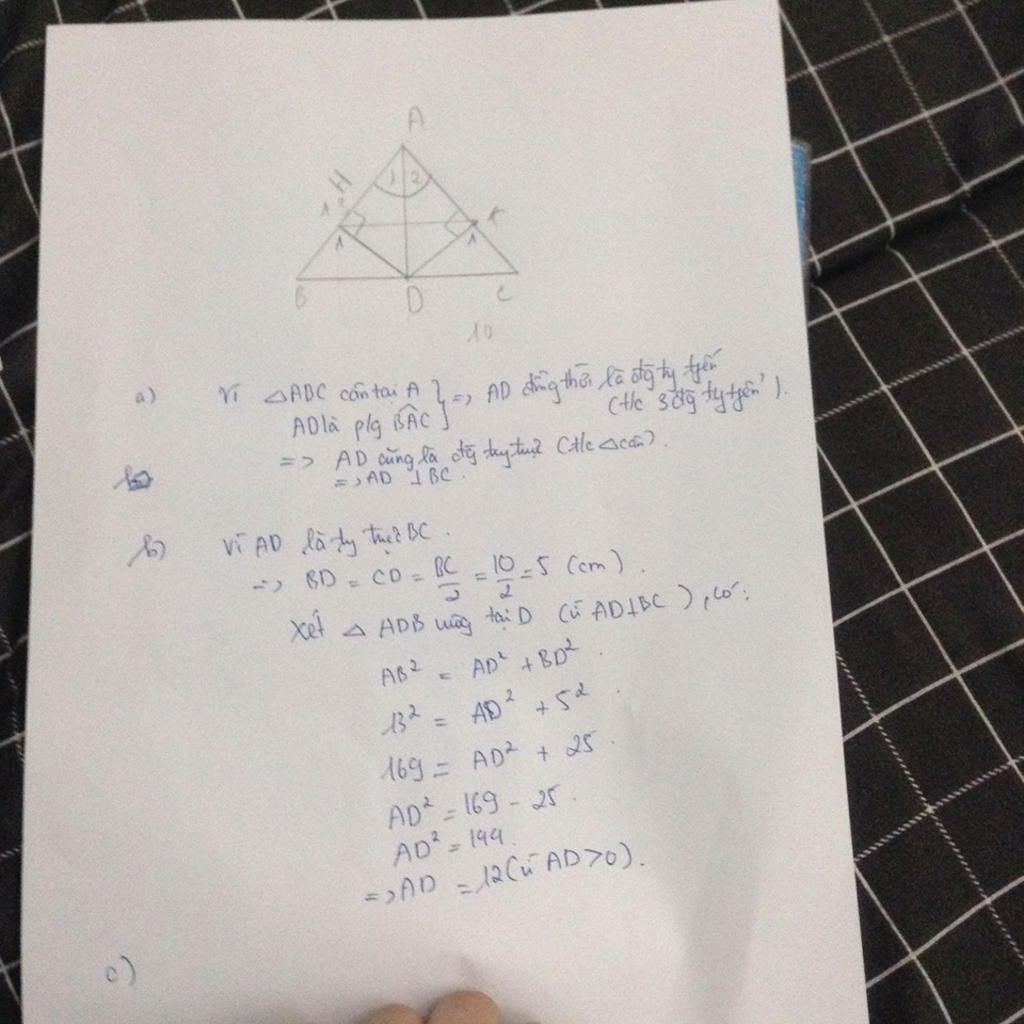 A
1 2
H
1 2
K
1
1
B
D
C
10
a) Vì △ABC cân tại A
AD là p/g BÂC } => AD đồng thời là đg ty tyến
(t/c 3 đg ty tyến).
=> AD cũng là đg ty trực (t/c △cân).
=> AD ⊥ BC.
b) Vì AD là ty trực BC.
=> BD = CD = BC/2 = 10/2 = 5 (cm).
Xét △ ADB vuông tại D (vì AD⊥BC), có:
AB² = AD² + BD².
13² = AD² + 5².
169 = AD² + 25.
AD² = 169 - 25.
AD² = 144.
=> AD = 12 (vì AD > 0).
c)